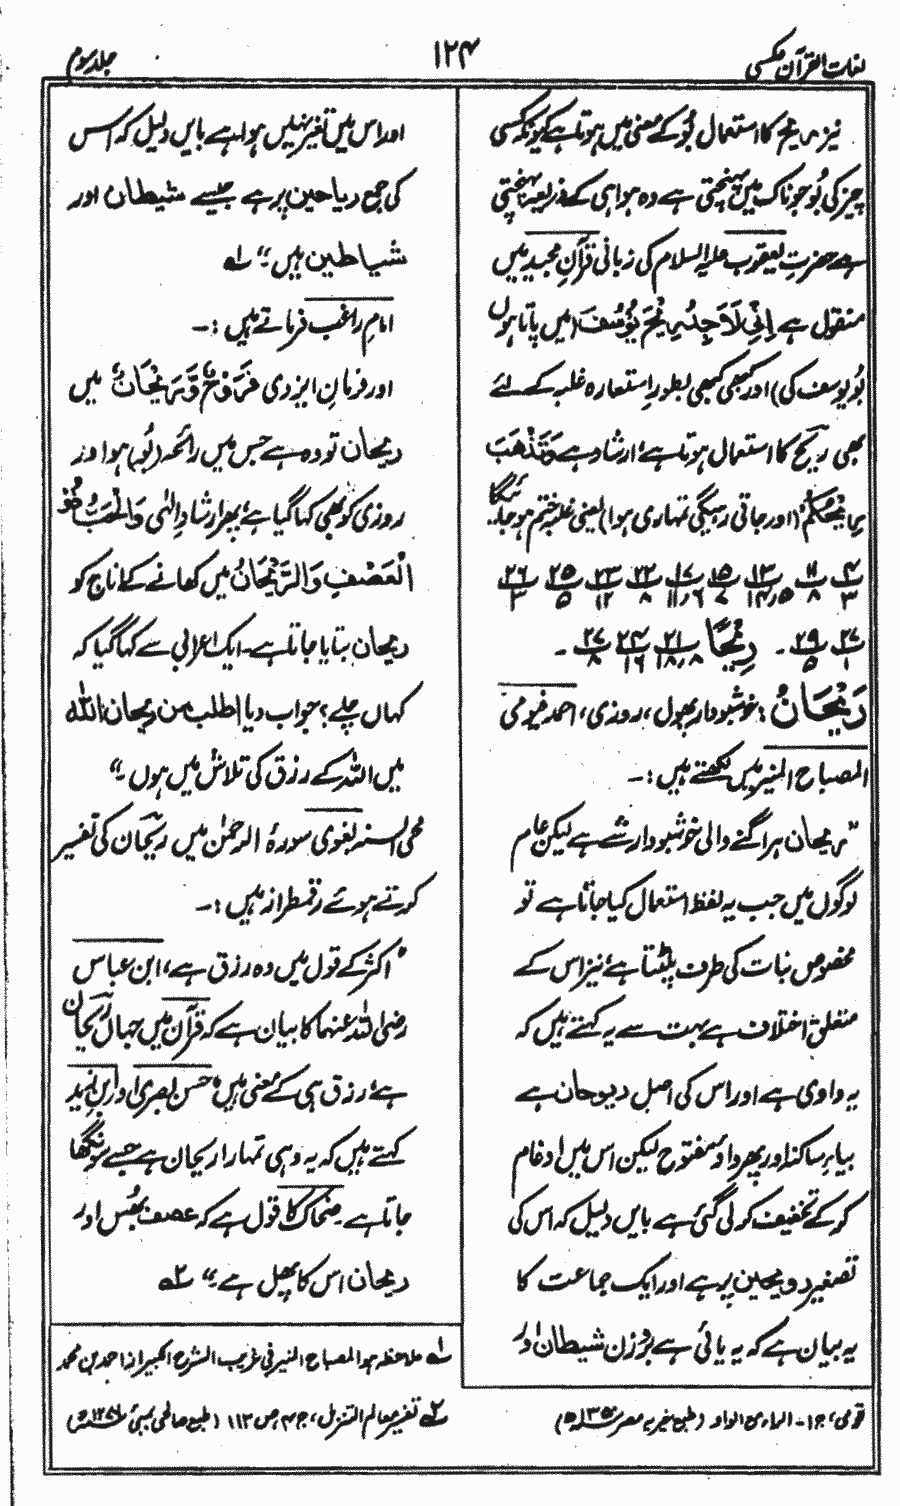 لغات القرآن مکسی
۱۲۴
جلد سوم
نیز ریح کا استعمال بُو کے معنی میں ہوتا ہے کیونکہ کسی
چیز کی بُو جو ناک میں پہنچتی ہے وہ ہوا ہی کے ذریعہ پہنچتی
ہے حضرت یعقوب علیہ السلام کی زبانی قرآنِ مجید میں
منقول ہے اِنِّیْ لَاَجِدُ رِیْحَ یُوْسُفَ (میں پاتا ہوں
بُو یوسف کی) اور کبھی کبھی بطورِ استعارہ غلبہ کے لئے
بھی ریح کا استعمال ہوتا ہے، ارشاد ہے وَتَذْهَبَ
رِیْحُکُمْ (اور جاتی رہیگی تمہاری ہوا) یعنی غلبہ ختم ہو جائیگا
۴/۳ ۱۱/۸ ۱۳/۱۴،۵ ۱۵/۷ ۱۷/۱۱،۶ ۲۲/۸ ۲۳/۱۲ ۲۵/۵ ۲۶/۳
۲۷/۱ ۲۹/۵ ۔ رِیْحًا ۲۱/۱۸،۸ ۲۴/۱۶ ۲۷/۸ ۔
رَیْحَانٌ : خوشبودار پھول، روزی، احمد فیومی
المصباح المنیر میں لکھتے ہیں :۔
”ریحان ہر اگنے والی خوشبودار شے ہے لیکن عام
لوگوں میں جب یہ لفظ استعمال کیا جاتا ہے تو
مخصوص نبات کی طرف پلٹتا ہے، نیز اس کے
متعلق اختلاف ہے بہت سے یہ کہتے ہیں کہ
یہ واوی ہے اور اس کی اصل ریوحان ہے
بیاءِ ساکنہ اور پھر واوِ مفتوح لیکن اس میں ادغام
کر کے تخفیف کر لی گئی ہے بایں دلیل کہ اس کی
تصغیر رویحین پر ہے اور ایک جماعت کا
یہ بیان ہے کہ یہ یائی ہے بروزن شیطان اور
اور اس میں تغیر نہیں ہوا ہے بایں دلیل کہ اس
کی جمع ریاحین پر ہے جیسے شیطان اور
شیاطین ہیں“۔ لہ
امامِ راغب فرماتے ہیں :۔
اور فرمانِ ایزدی فَرَوْحٌ وَّرَیْحَانٌ میں
ریحان تو وہ ہے جس میں رائحہ (بُو) ہو اور
روزی کو بھی کہا گیا ہے، پھر ارشادِ الٰہی وَالْحَبُّ ذُو
الْعَصْفِ وَالرَّیْحَانُ میں کھانے کے اناج کو
ریحان بتایا جاتا ہے۔ ایک اعرابی سے کہا گیا کہ
کہاں چلے؟ جواب دیا اطلب من ریحان اللہ
میں اللہ کے رزق کی تلاش میں ہوں“۔
محی السنہ بغوی سورۂ الرحمٰن میں ریحان کی تفسیر
کرتے ہوئے رقمطراز ہیں :۔
”اکثر کے قول میں وہ رزق ہے، ابن عباس
رضی اللہ عنہما کا بیان ہے کہ قرآن میں جہاں ریحان
ہے، رزق ہی کے معنی میں، حسن بصری اور ابن زید
کہتے ہیں کہ یہ وہی تمہارا ریحان ہے جسے سونگھا
جاتا ہے۔ ضحاک کا قول ہے کہ عصف بھس اور
ریحان اس کا پھل ہے“۔ ۲ہ
لہ ملاحظہ ہو المصباح المنیر فی غریب الشرح الکبیر از احمد بن محمد
فیومی، ج ۱۔ الراء مع الواو (طبع خیریہ مصر
۲ہ تفسیر معالم التنزیل، ج ۴، ص ۱۱۳ (طبع صالحی بمبئی